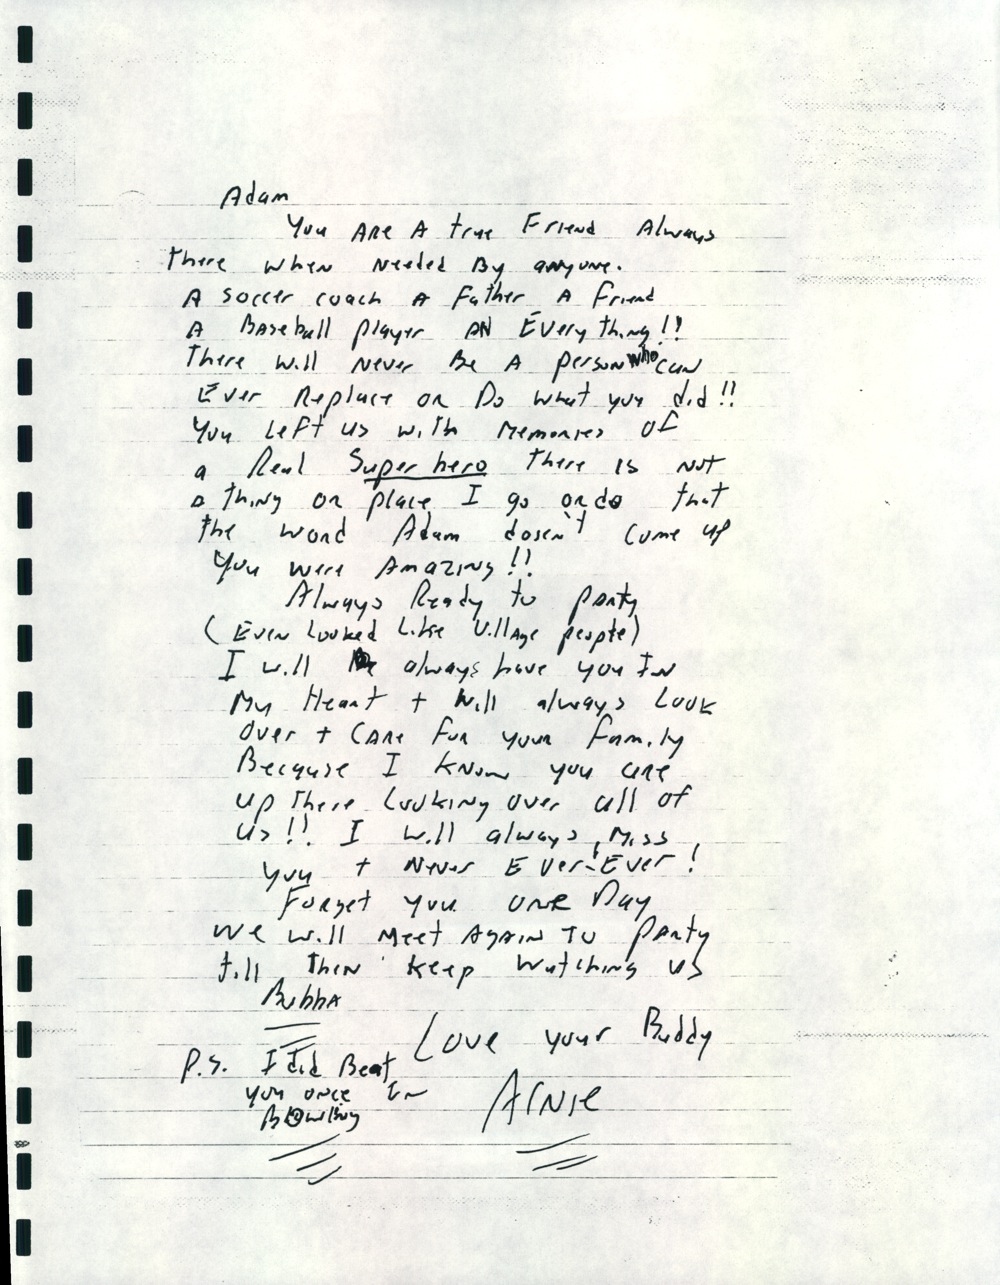 Adam
You Are A true Friend Always
there when needed By anyone.
A soccer coach A Father A Friend
A Baseball player AN Everything!!
There will Never Be A person who can
Ever Replace or Do what you did!!
You Left us with Memories of
a Real Super hero there is not
a thing or place I go or do that
the word Adam dosen't come up
You were Amazing!!
Always Ready to party
(Even Looked Like Village people)
I will always have you In
My Heart + Will always Look
over + Care for your family
Because I know you are
up there Looking over all of
us!! I will always Miss
you + Never Ever! Ever!
Forget you one Day
we will Meet Again To party
till then keep watching us
Bubba
Love your Buddy
P.S. I did Beat
you once In
Bowling
Arnie